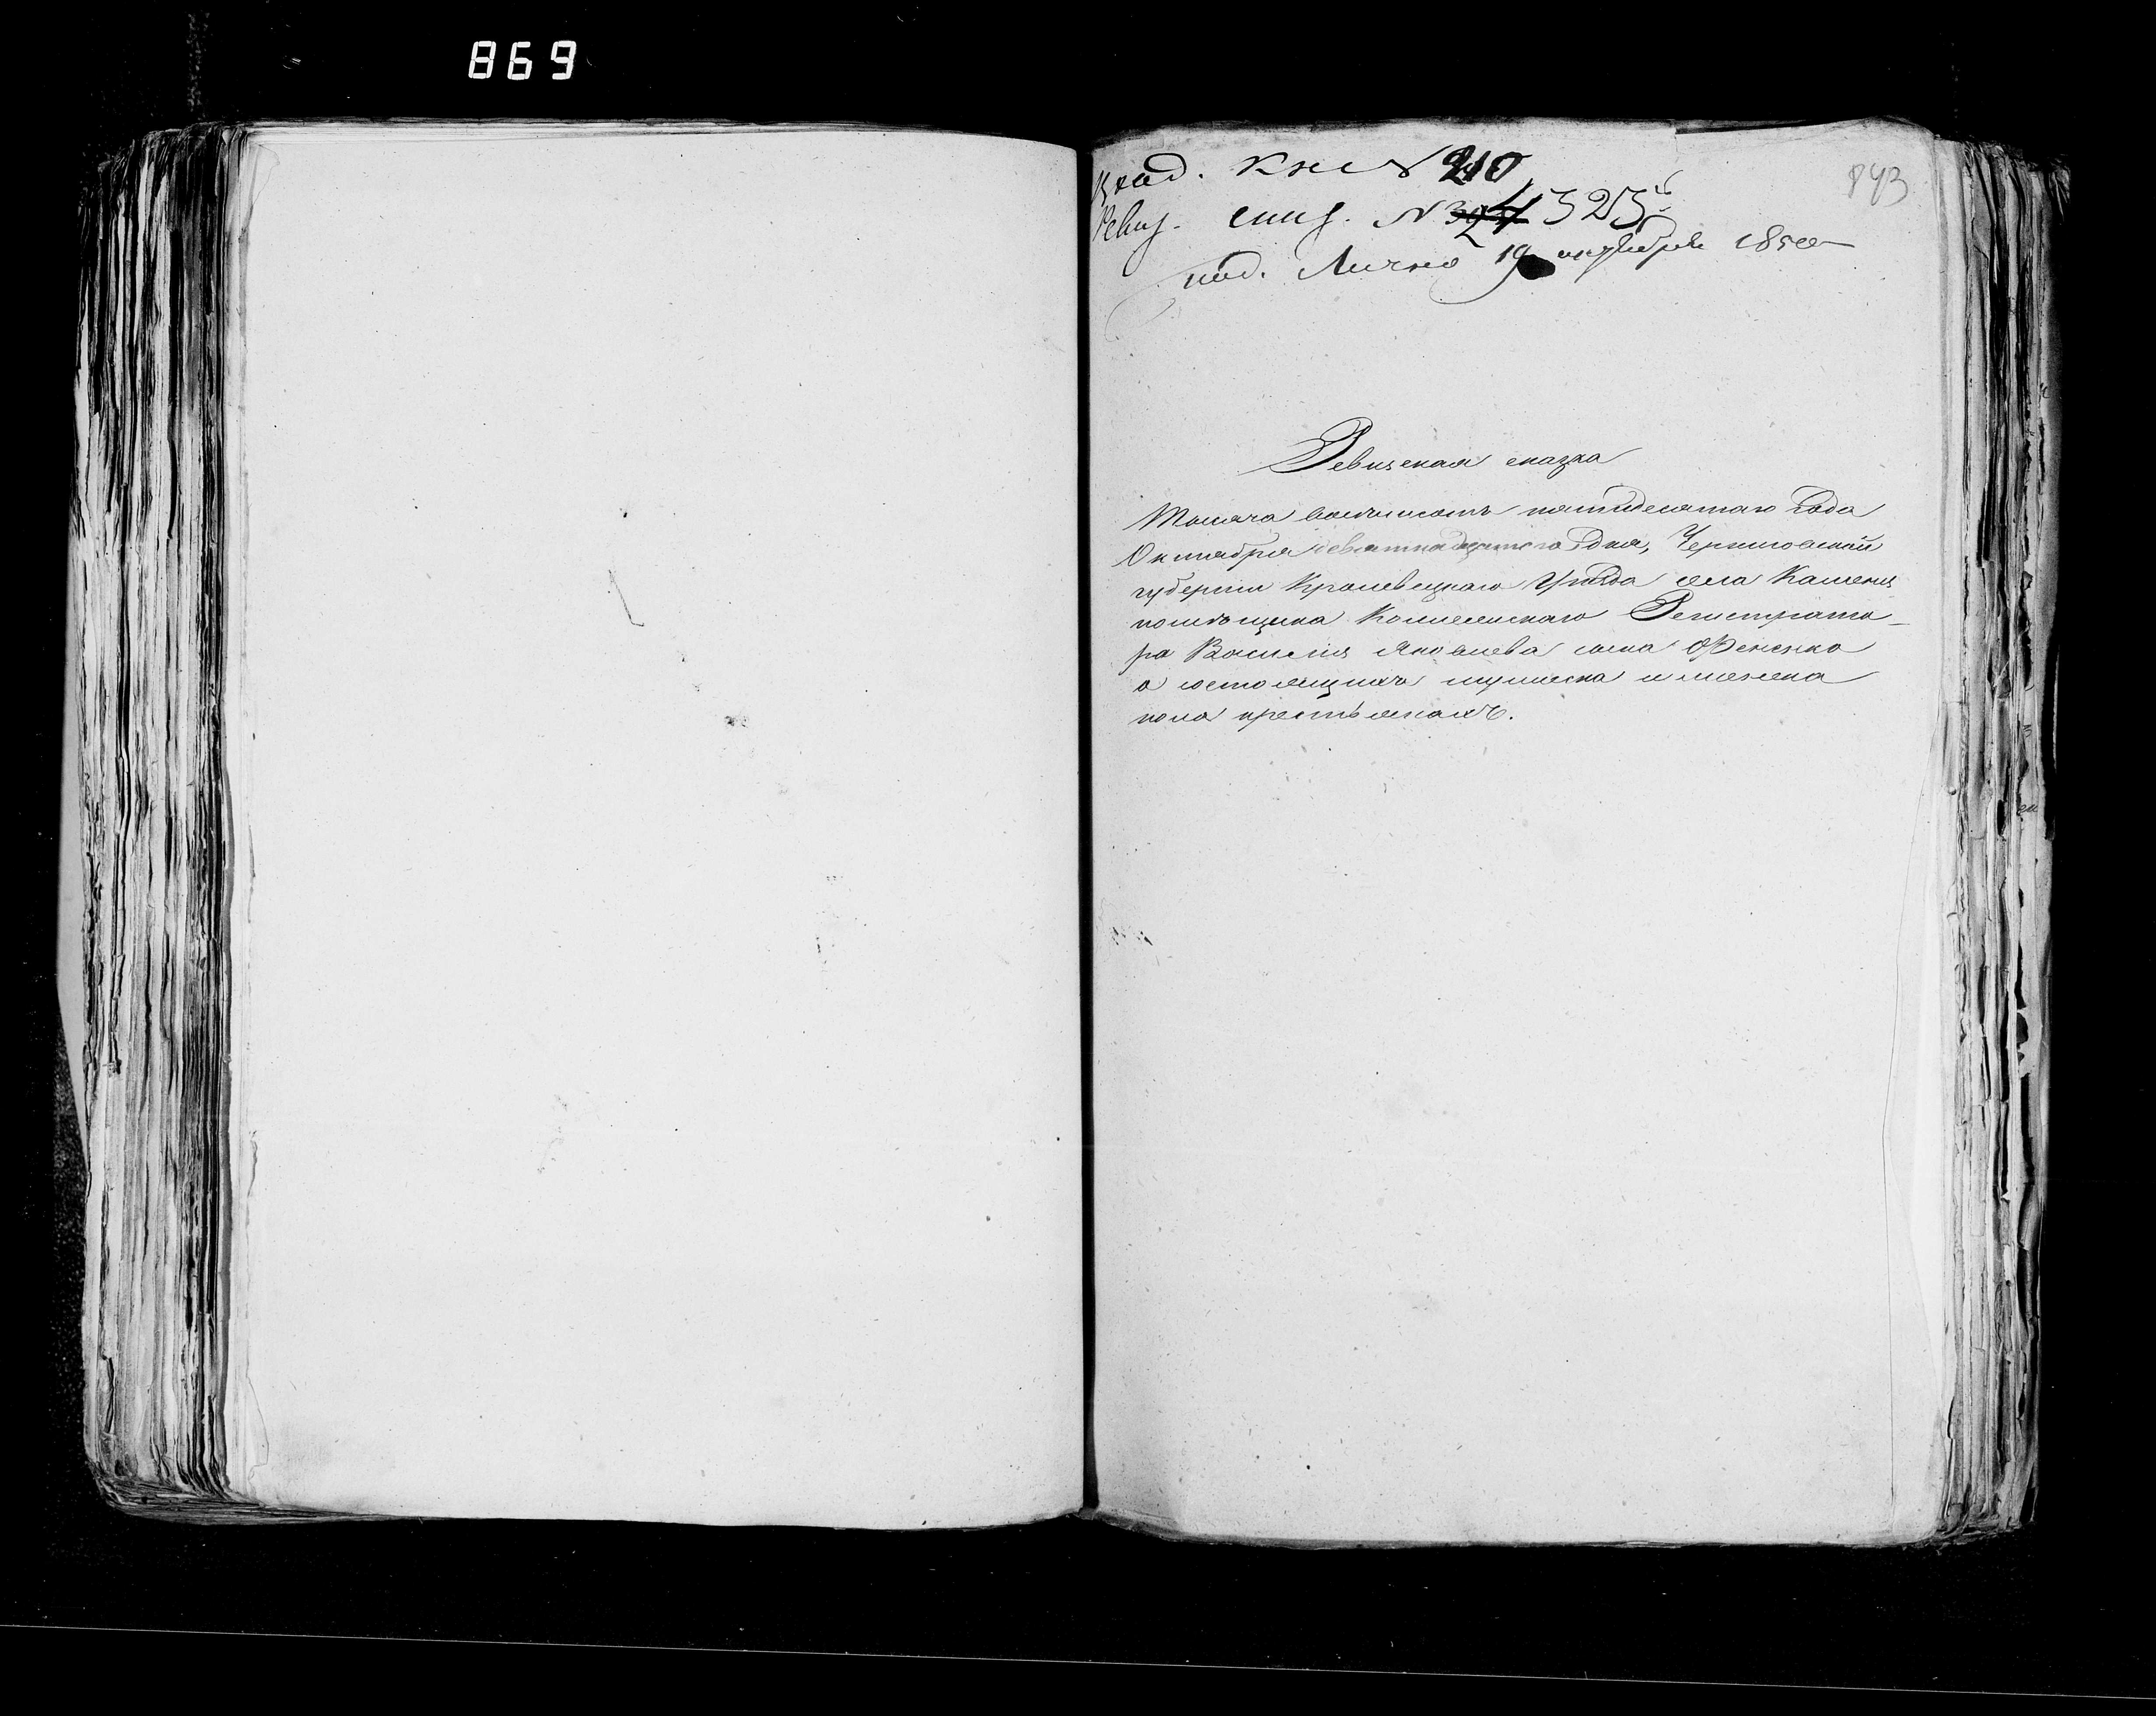 869
893
Вход. Кн. № 210
Ревиз. спис. № 325
под. Лично 19 октября 1850
Ревизская сказка
Тысяча восемьсотъ пятидесятаго года
Октября девятнадцатаго дня, Черниговской
губернии Кролевецкаго уѣзда села Каменя
помѣщика Коллежскаго Регистрато-
ра Василия Яковлева сына
о состоящихъ мужеска и женска
пола крестьянахъ.